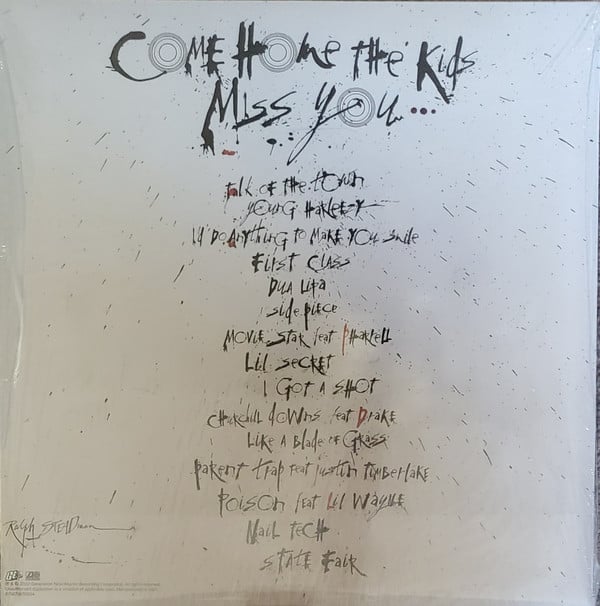 Come Home the Kids
Miss You...
talk of the town
young Harleezy
I'd Do Anything to Make You Smile
First Class
Dua Lipa
side piece
Movie Star feat Pharrell
Lil Secret
I Got A Shot
Churchill downs feat Drake
Like A Blade of Grass
Parent trap feat justin timberlake
Poison feat Lil Wayne
Nail Tech
State Fair
Ralph STEADman